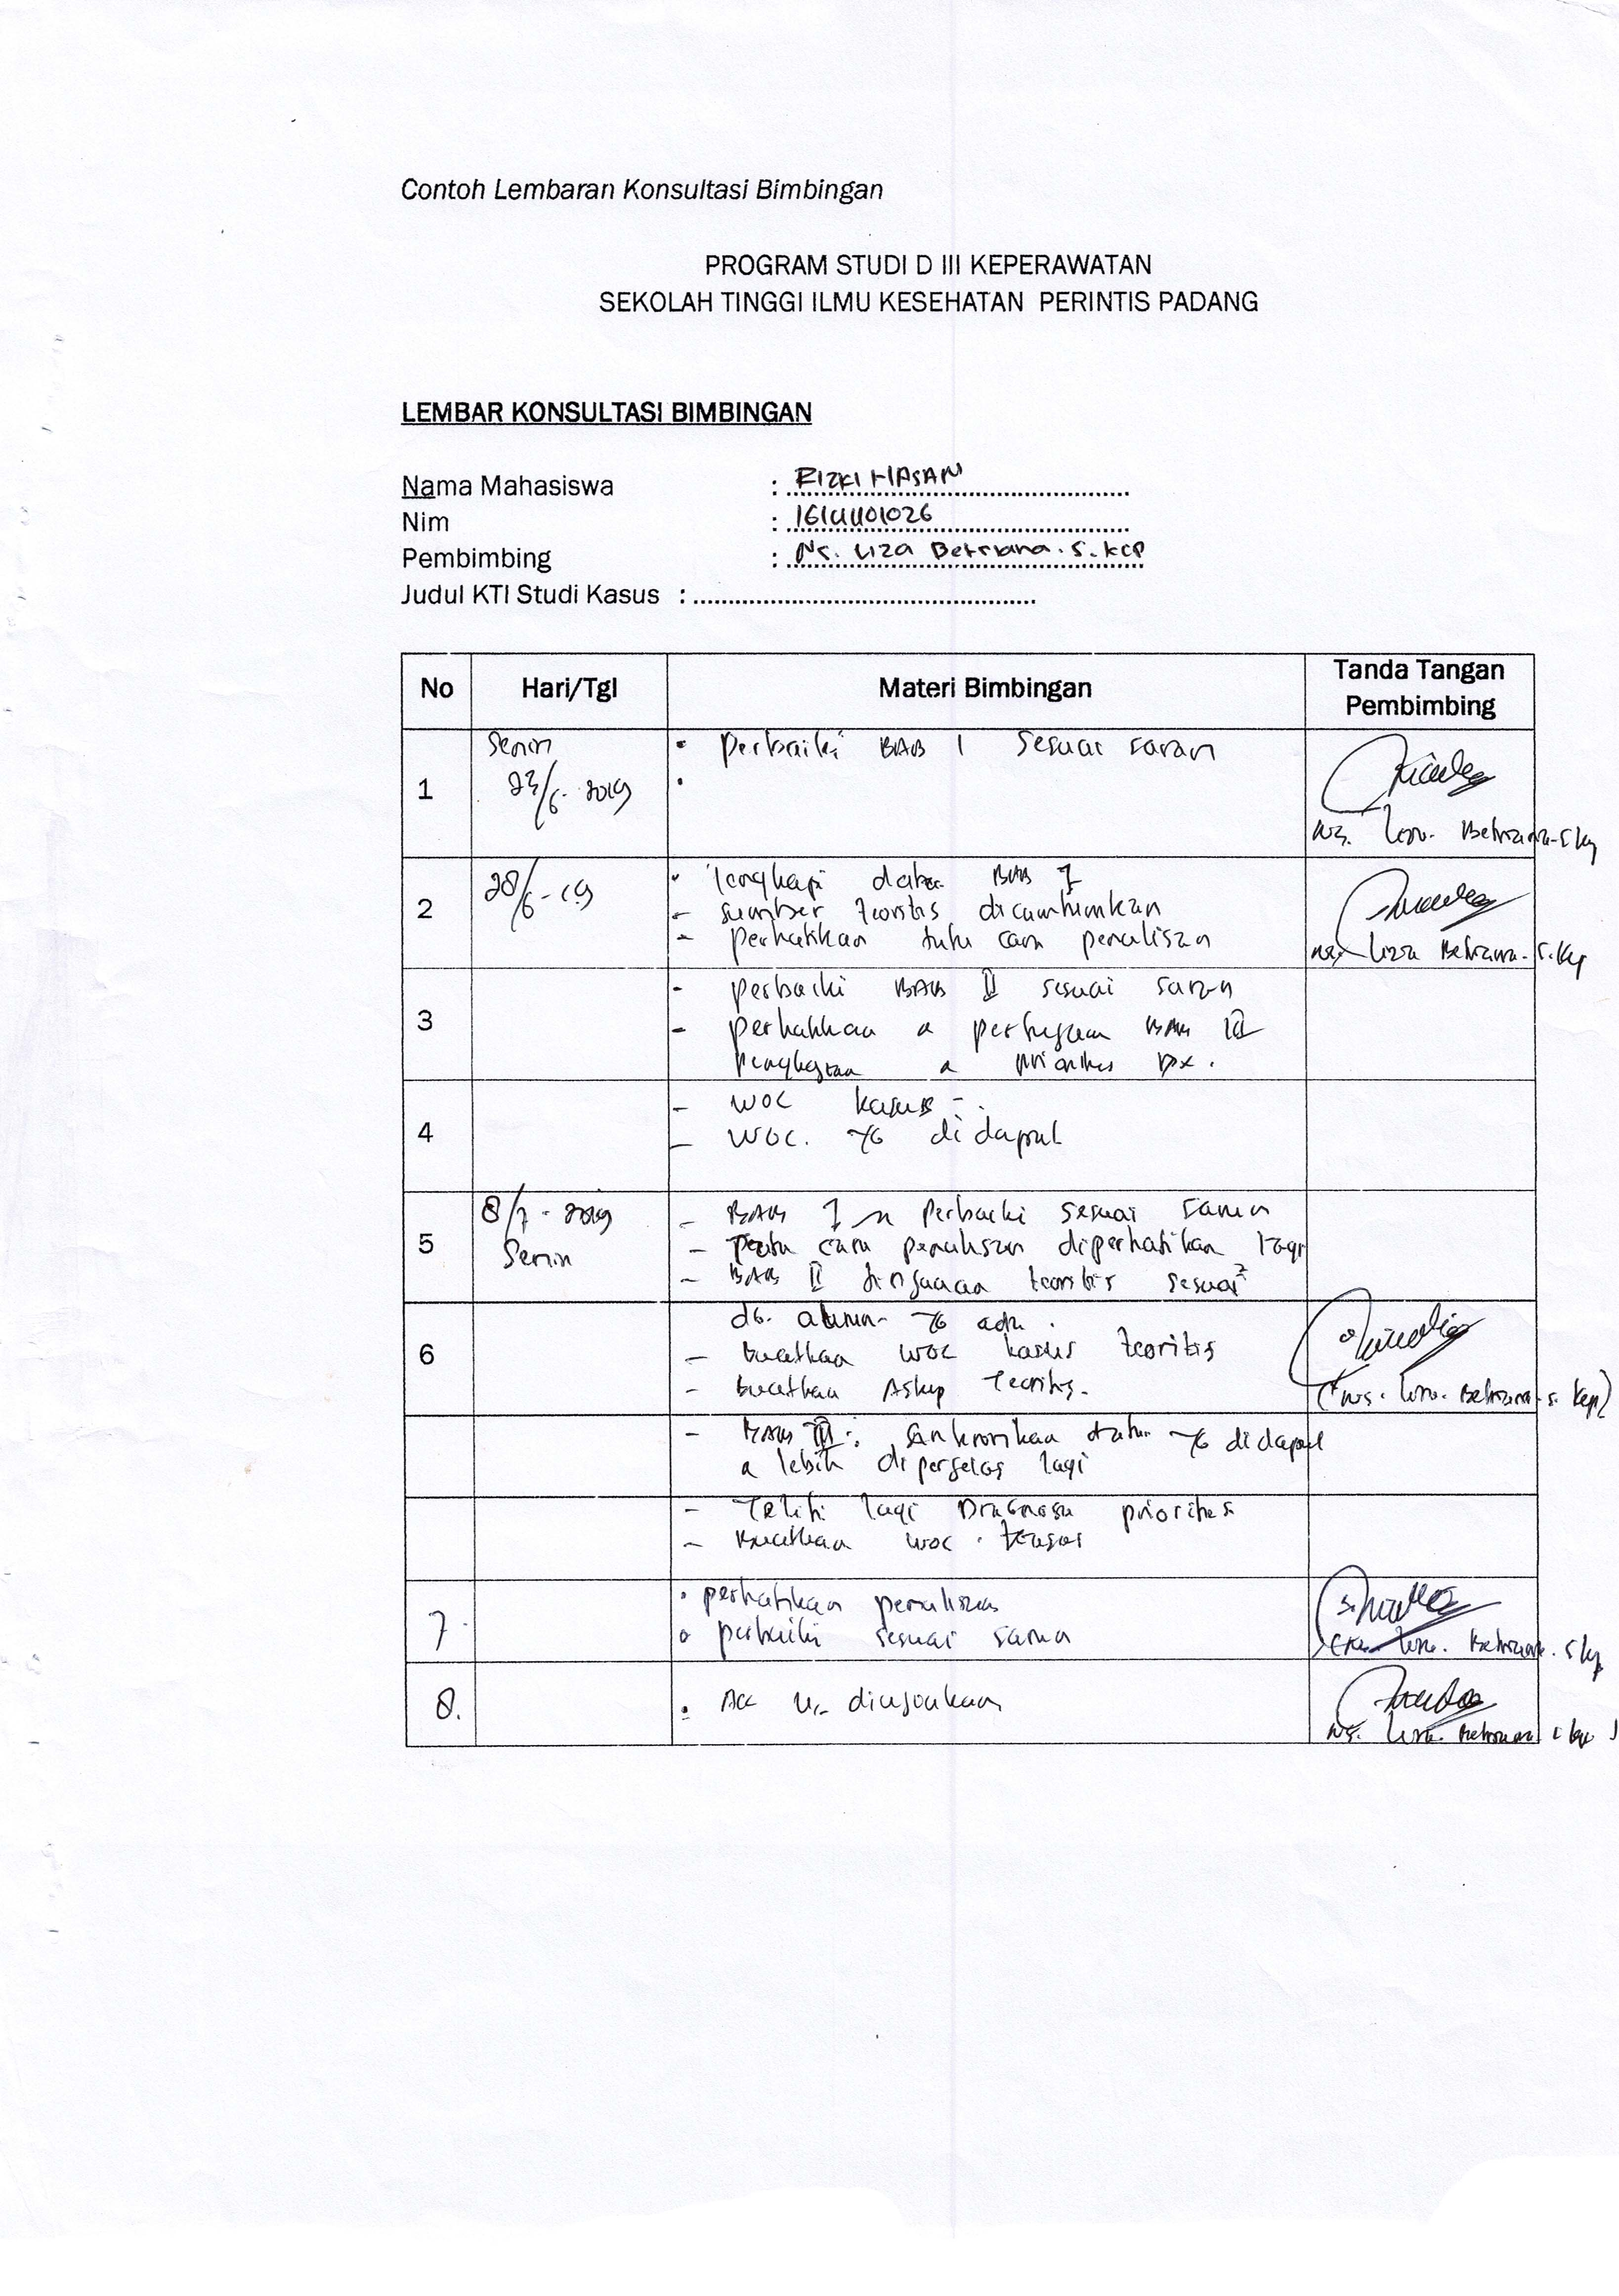 Contoh Lembaran Konsultasi Bimbingan
PROGRAM STUDI D III KEPERAWATAN
SEKOLAH TINGGI ILMU KESEHATAN PERINTIS PADANG
LEMBAR KONSULTASI BIMBINGAN
Nama Mahasiswa : RIZKI HASAN
Nim : 1614401026
Pembimbing : Ns. Liza Betriana. S. Kep
Judul KTI Studi Kasus :
No Hari/Tgl Materi Bimbingan Tanda Tangan Pembimbing
1 Senin • perbaiki BAB I sesuai saran
/6 - 2019 •
Ns. Betriana
2 28/6 - 19 • lengkapi data BAB I
- sumber teoritis dicantumkan
- perhatikan tata cara penulisan
Liza Betriana. S.Kep
3 - perbaiki BAB II sesuai saran
- perhatikan BAB III
prioritas Dx.
4 - WOC kasus
- WOC. yg didapat
5 8/7 - 2019 - BAB I perbaiki sesuai saran
Senin - cara penulisan diperhatikan lagi
- BAB II tinjauan teoritis sesuai²
6 dg. yg ada.
- buatkan WOC kasus teoritis
- buatkan Askep Teoritis.
(Ns. Betriana S. Kep)
- BAB III : data yg didapat
lebih diperjelas lagi
- Teliti lagi Diagnosa prioritas
- buatkan WOC
7 • perhatikan penulisan
• perbaiki sesuai saran
Betriana. S Kep
8. • Acc diujiankan
Ns. Betriana